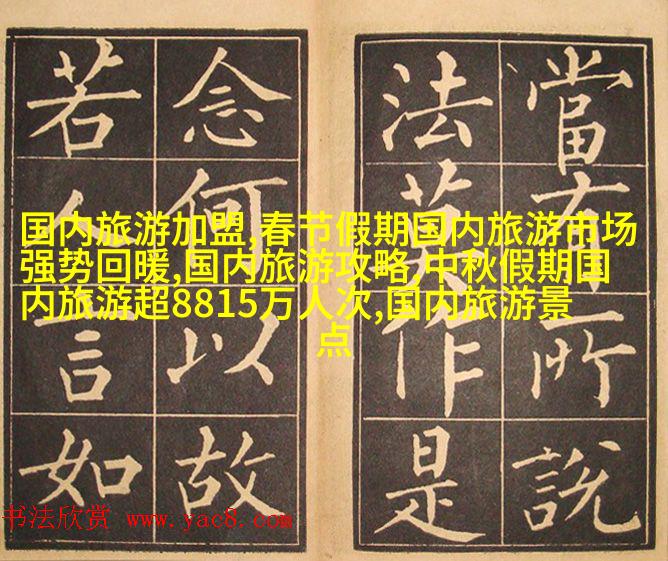 国内旅游加盟,春节假期国内旅游市场
强势回暖,国内旅游攻略,中秋假期国
内旅游超8815万人次,国内旅游景
点
當有所說
法莫作是
念何以故
若人言如
书法欣赏 www.yac8.com